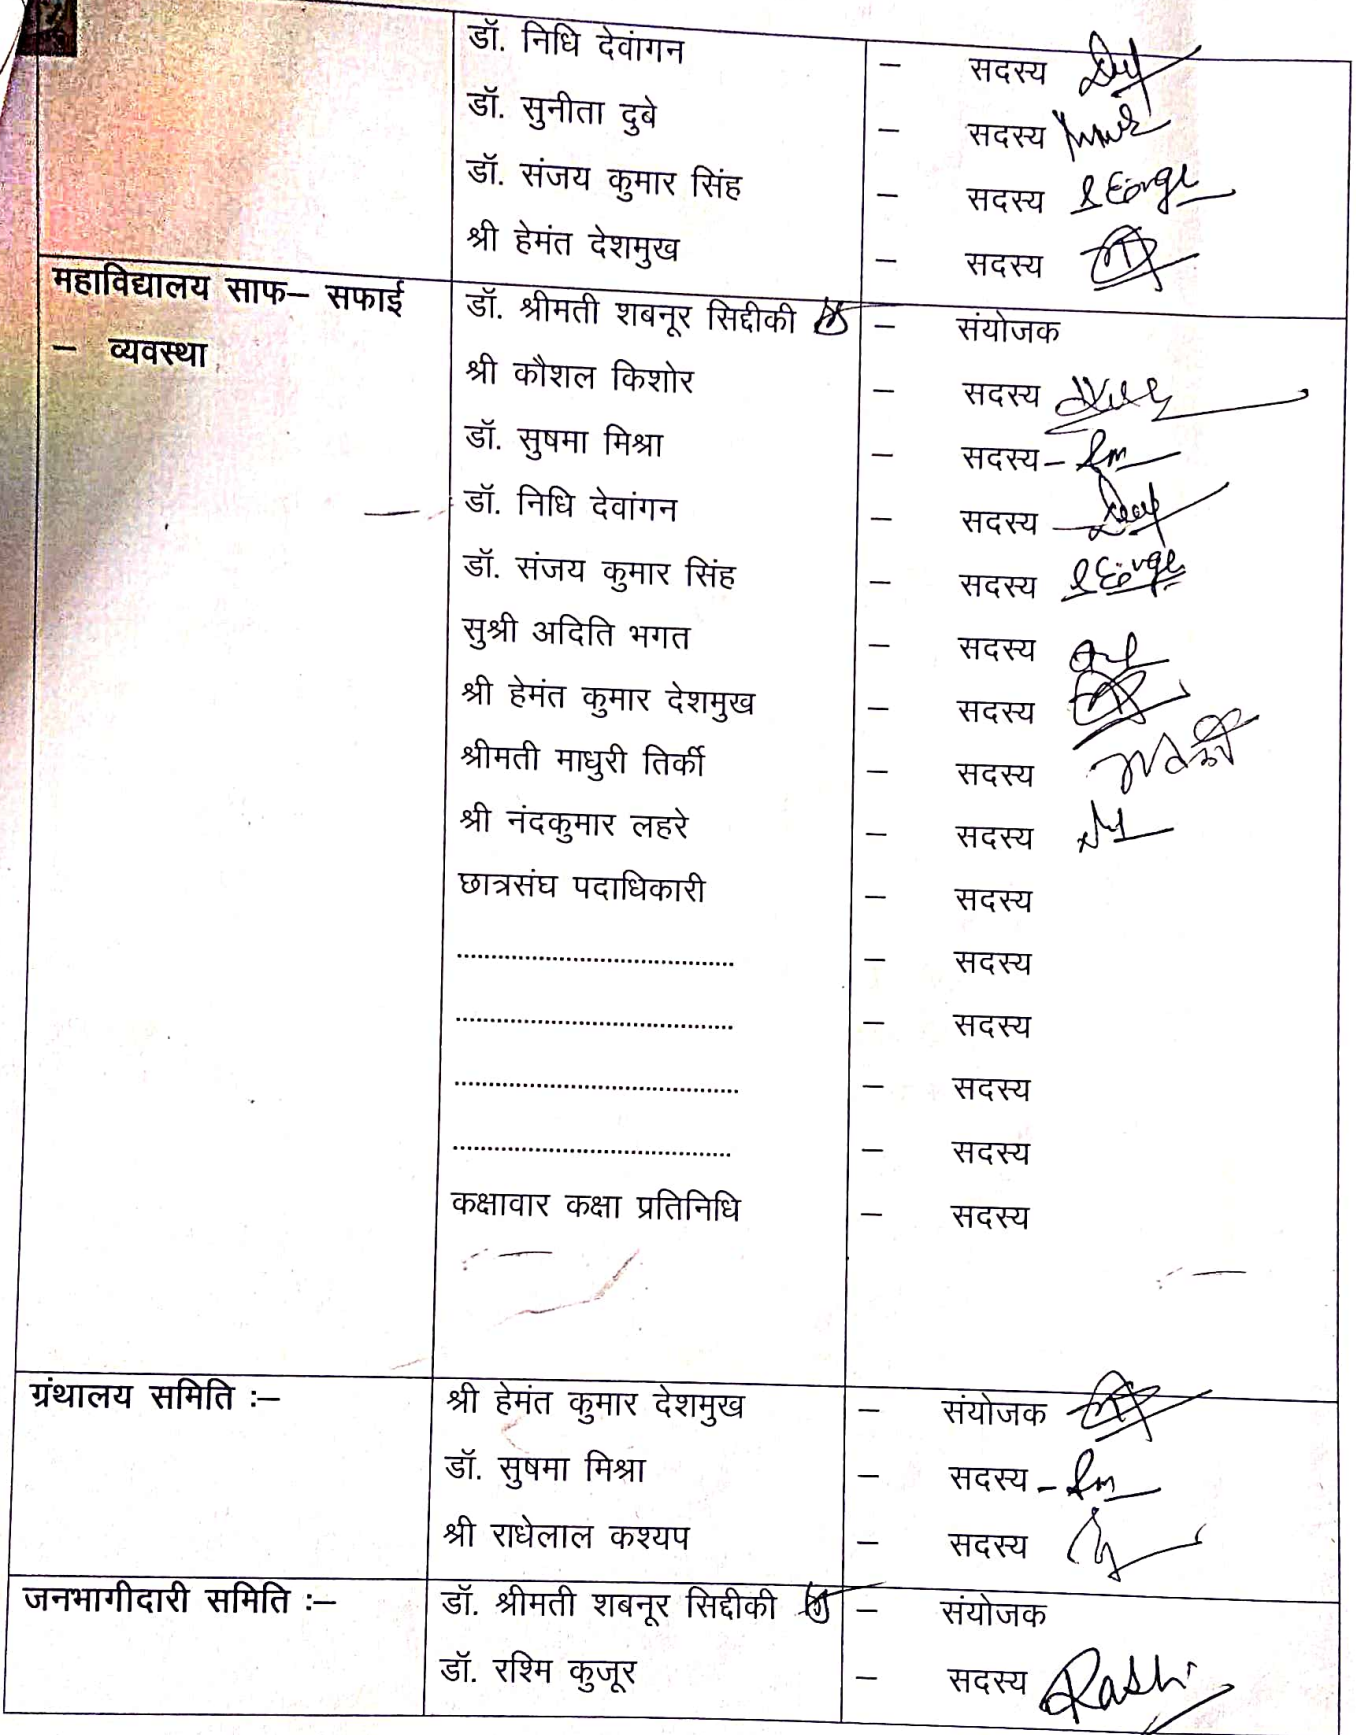 डॉ. निधि देवांगन – सदस्य
डॉ. सुनीता दुबे – सदस्य
डॉ. संजय कुमार सिंह – सदस्य
श्री हेमंत देशमुख – सदस्य
महाविद्यालय साफ– सफाई डॉ. श्रीमती शबनूर सिद्दीकी – संयोजक
– व्यवस्था श्री कौशल किशोर – सदस्य
डॉ. सुषमा मिश्रा – सदस्य –
डॉ. निधि देवांगन – सदस्य
डॉ. संजय कुमार सिंह – सदस्य
सुश्री अदिति भगत – सदस्य
श्री हेमंत कुमार देशमुख – सदस्य
श्रीमती माधुरी तिर्की – सदस्य
श्री नंदकुमार लहरे – सदस्य
छात्रसंघ पदाधिकारी – सदस्य
........................................ – सदस्य
........................................ – सदस्य
........................................ – सदस्य
........................................ – सदस्य
कक्षावार कक्षा प्रतिनिधि – सदस्य
ग्रंथालय समिति :– श्री हेमंत कुमार देशमुख – संयोजक
डॉ. सुषमा मिश्रा – सदस्य –
श्री राधेलाल कश्यप – सदस्य
जनभागीदारी समिति :– डॉ. श्रीमती शबनूर सिद्दीकी – संयोजक
डॉ. रश्मि कुजूर – सदस्य